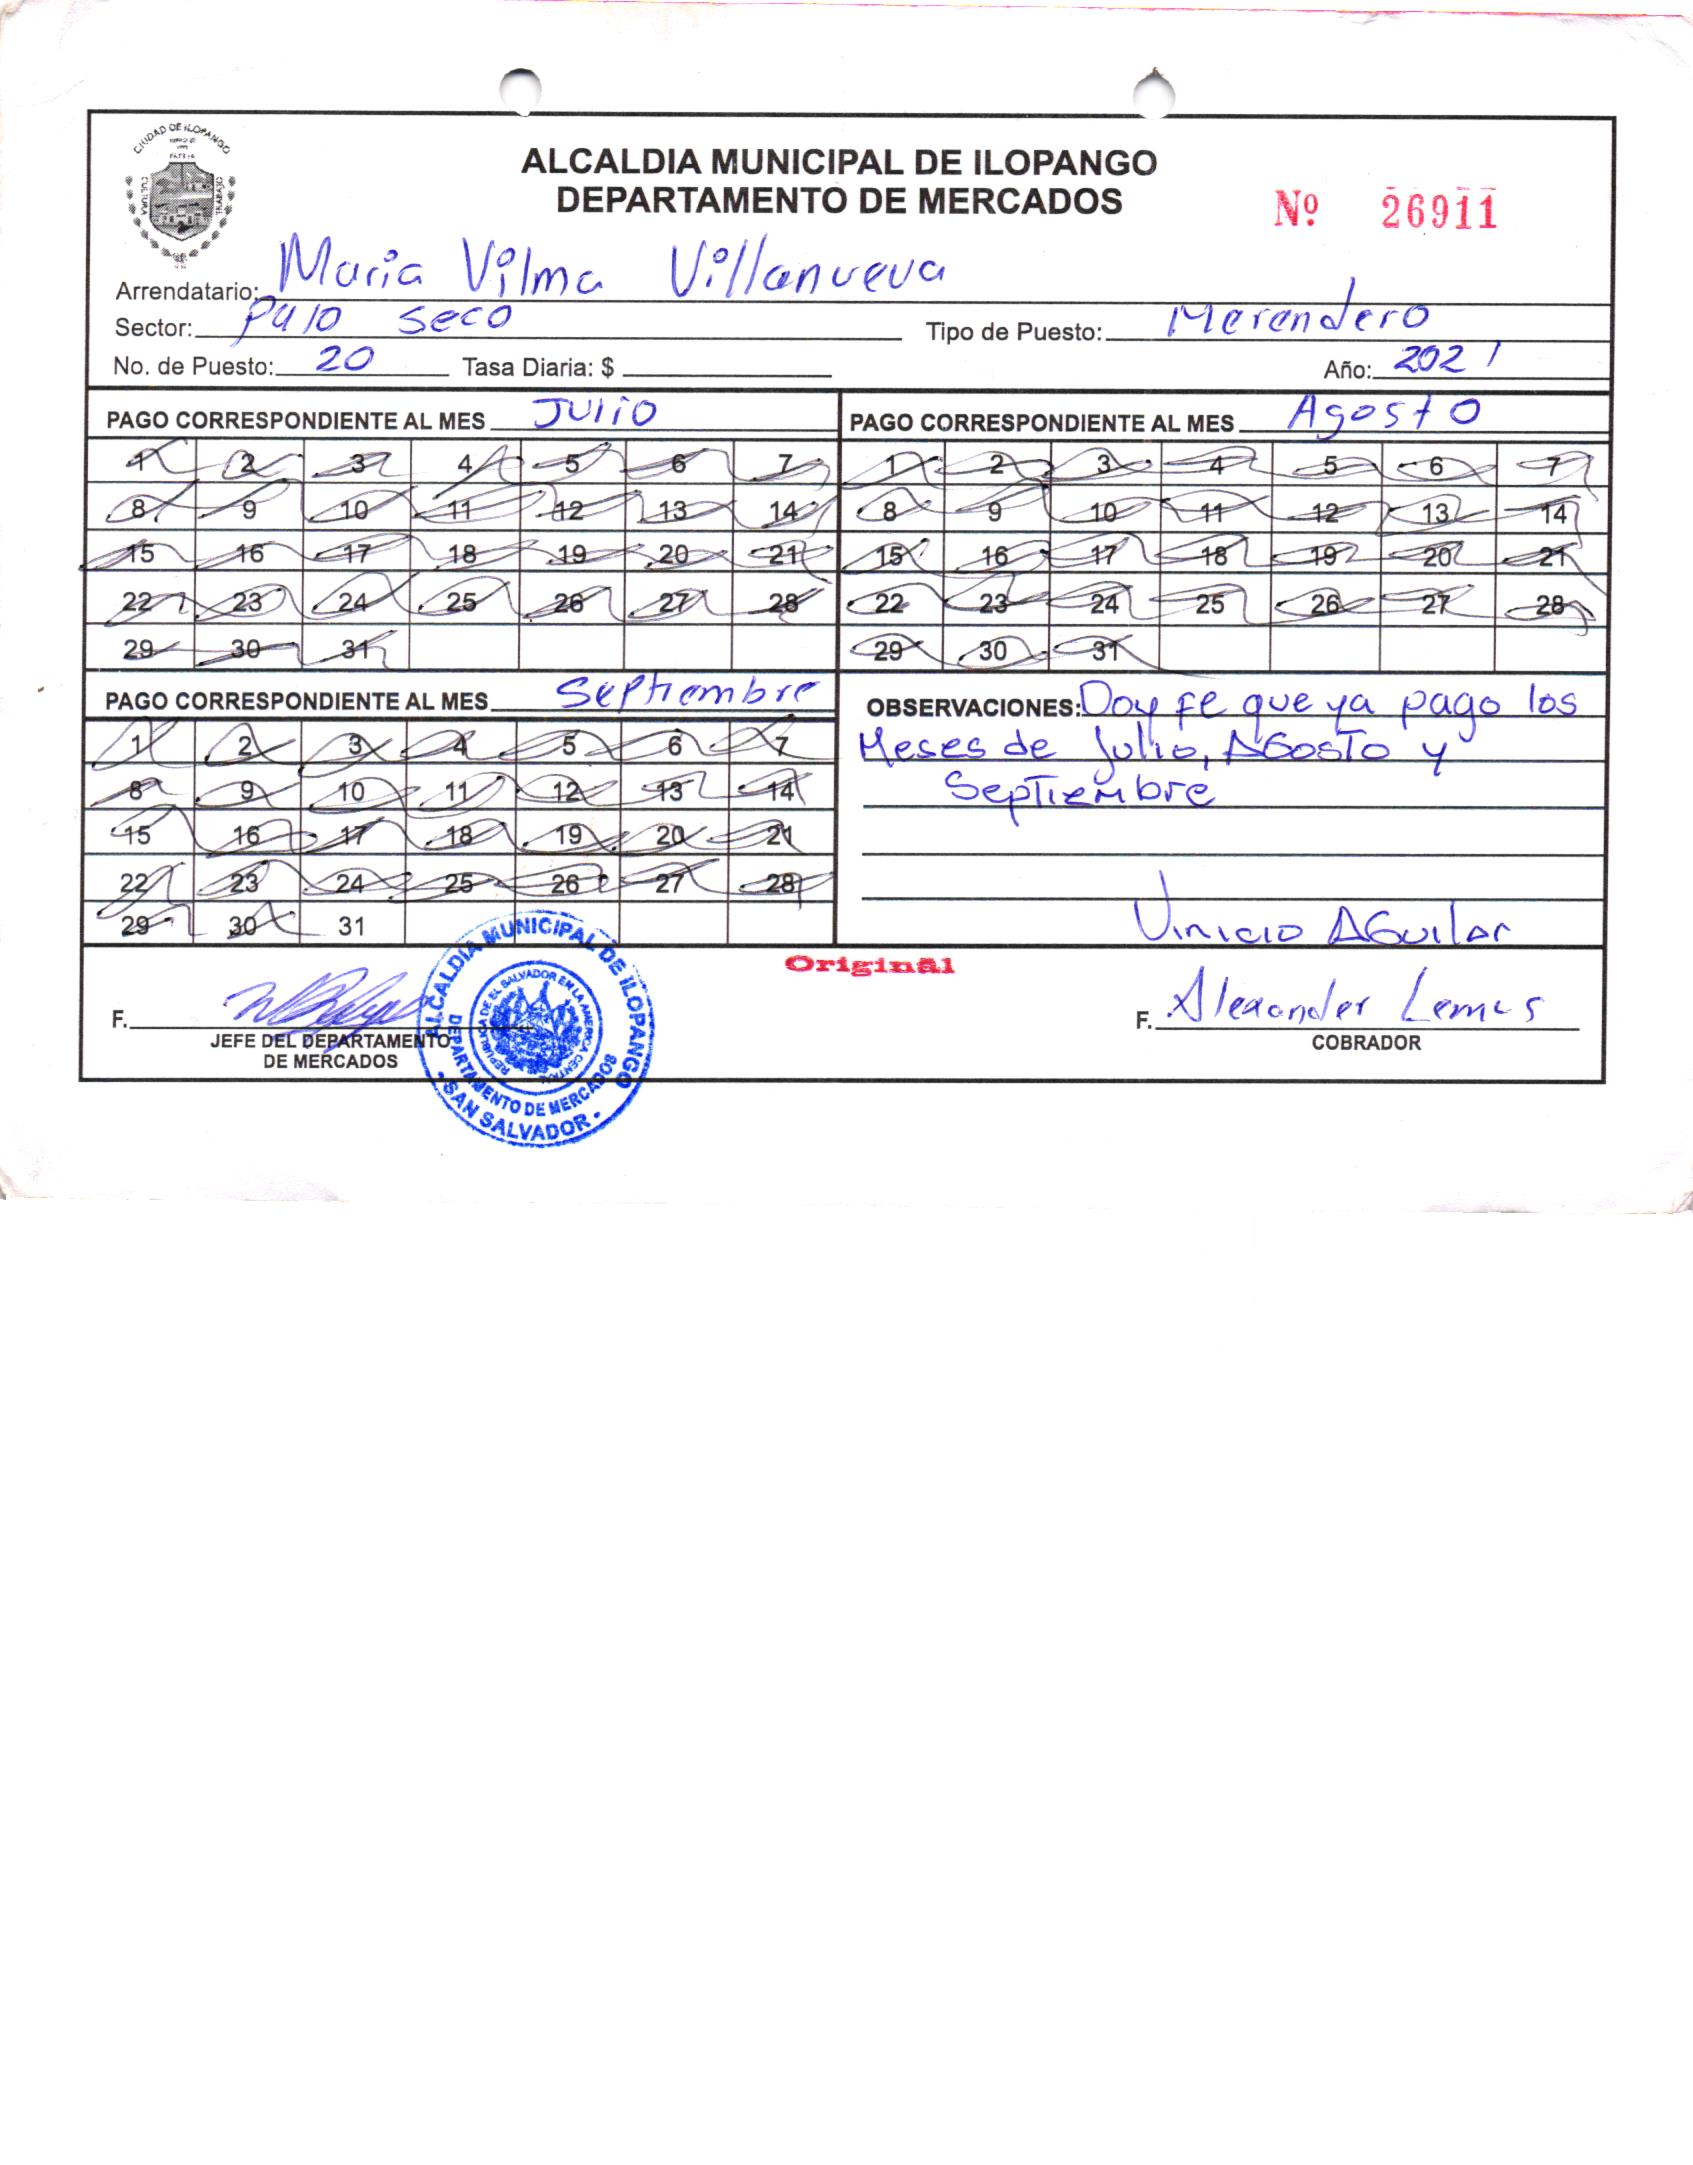 CIUDAD DE ILOPANGO
CULTURA
TRABAJO
ALCALDIA MUNICIPAL DE ILOPANGO
DEPARTAMENTO DE MERCADOS
Nº 26911
Arrendatario: Maria Vilma Villanueva
Sector: Palo seco Tipo de Puesto: Merendero
No. de Puesto: 20 Tasa Diaria: $ Año: 2021
PAGO CORRESPONDIENTE AL MES Julio
1 2 3 4 5 6 7
8 9 10 11 12 13 14
15 16 17 18 19 20 21
22 23 24 25 26 27 28
29 30 31
PAGO CORRESPONDIENTE AL MES Agosto
1 2 3 4 5 6 7
8 9 10 11 12 13 14
15 16 17 18 19 20 21
22 23 24 25 26 27 28
29 30 31
PAGO CORRESPONDIENTE AL MES Septiembre
1 2 3 4 5 6 7
8 9 10 11 12 13 14
15 16 17 18 19 20 21
22 23 24 25 26 27 28
29 30 31
OBSERVACIONES: Doy fe que ya pago los
Meses de Julio, AGosTo y
SepTiembre
Vinicio AGuilar
Original
F.
JEFE DEL DEPARTAMENTO
DE MERCADOS
ALCALDIA MUNICIPAL DE ILOPANGO
REPUBLICA DE EL SALVADOR EN LA AMERICA CENTRAL
DEPARTAMENTO DE MERCADOS
- SAN SALVADOR -
F. Alexander Lemus
COBRADOR